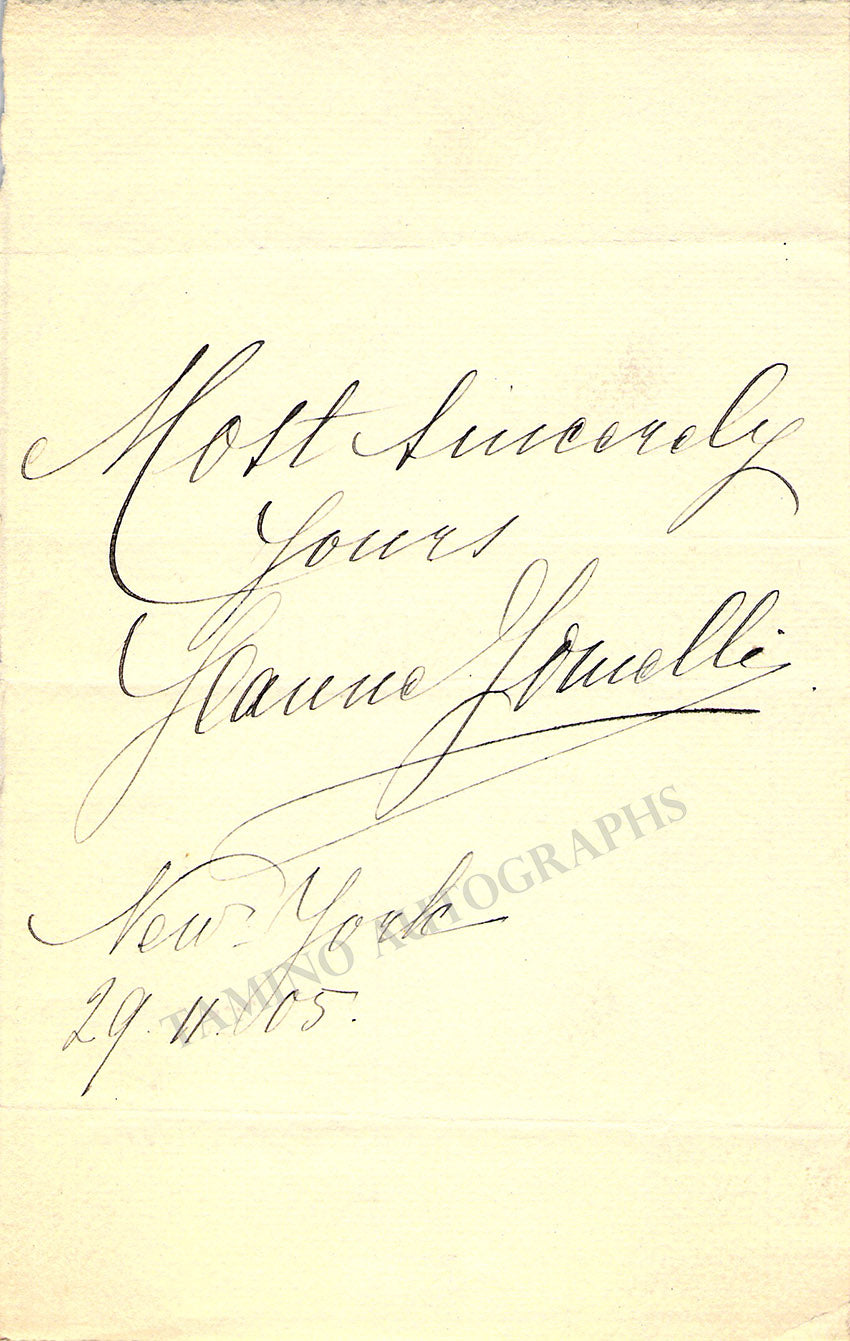 Most sincerely
yours
Jeanne Jomelli
New York
29. 11. 05.
TAMINO AUTOGRAPHS